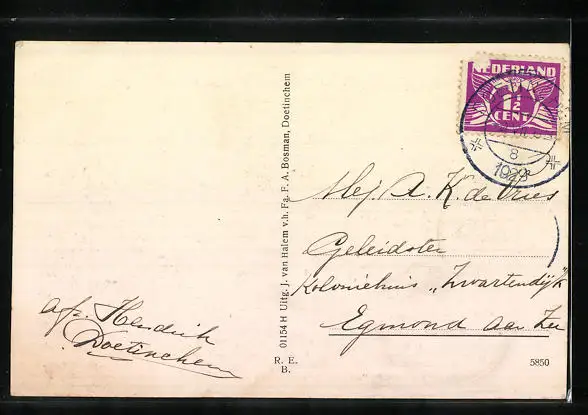 NEDERLAND
1½
CENT
8
1923
Mej. A. K. de Vries
Geleidster
Koloniehuis „Zwartendijk"
Egmond aan Zee
afz. Hendrik
Doetinchem
01154 H Uitg. J. van Halem v.h. Fa. F. A. Bosman, Doetinchem
R. E.
B.
5850